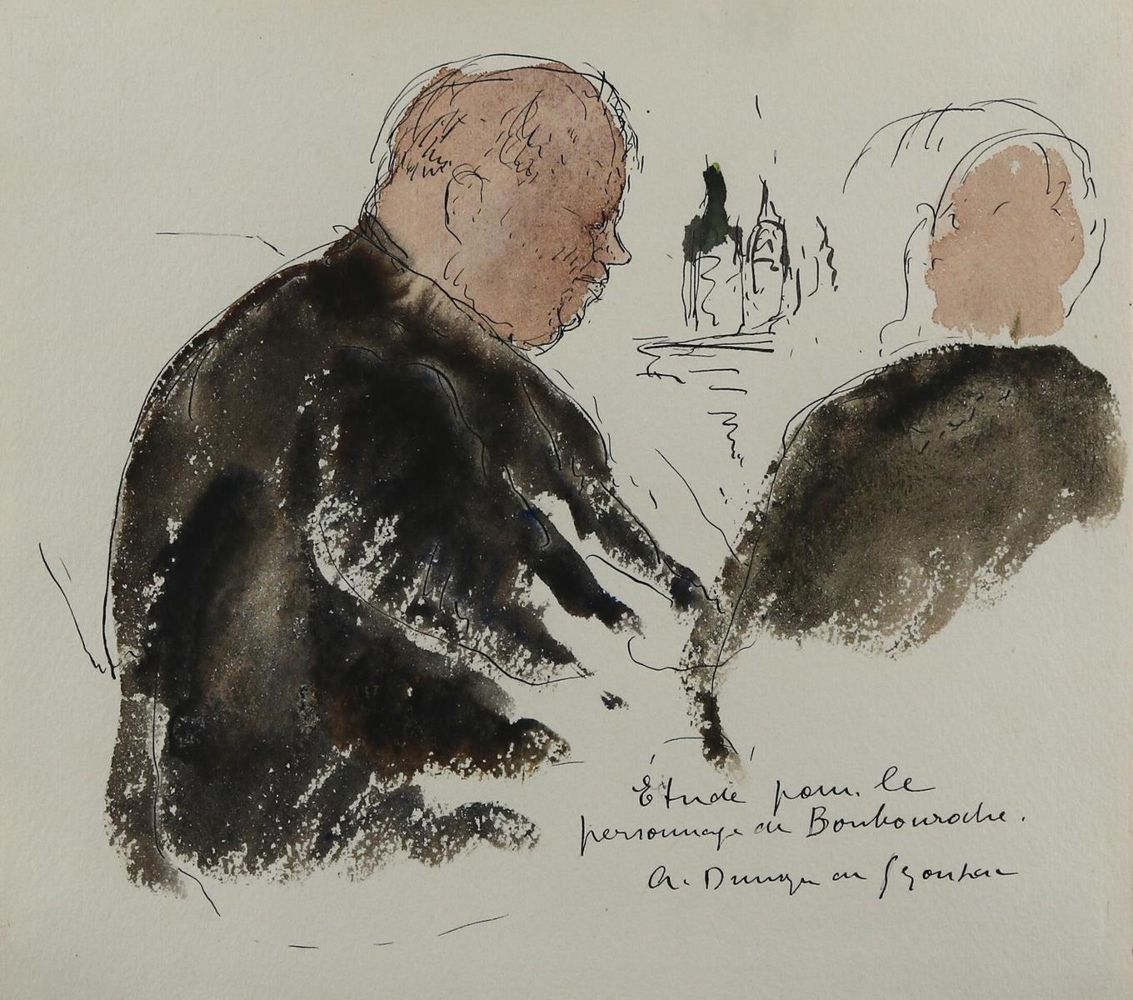 Étude pour le
personnage de Boubouroche.
A. Dunoyer de Segonzac